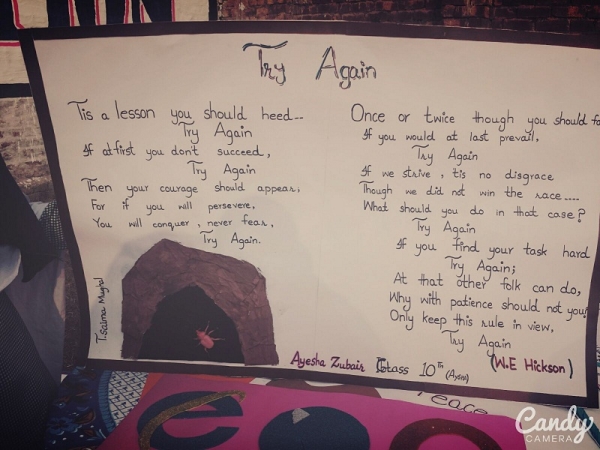 Try Again
Tis a lesson you should heed--
Try Again
If at first you don't succeed,
Try Again
Then your courage should appear,
For if you will persevere,
You will conquer, never fear,
Try Again.
T.Salma Mughal
Once or twice though you should
If you would at last prevail,
Try Again
If we strive, tis no disgrace
Though we did not win the race....
What should you do in that case?
Try Again
If you find your task hard
Try Again;
At that other folk can do,
Why with patience should not you
Only keep this rule in view,
Try Again
(W.E Hickson)
Ayesha Zubair Class 10th
Peace
Candy
CAMERA